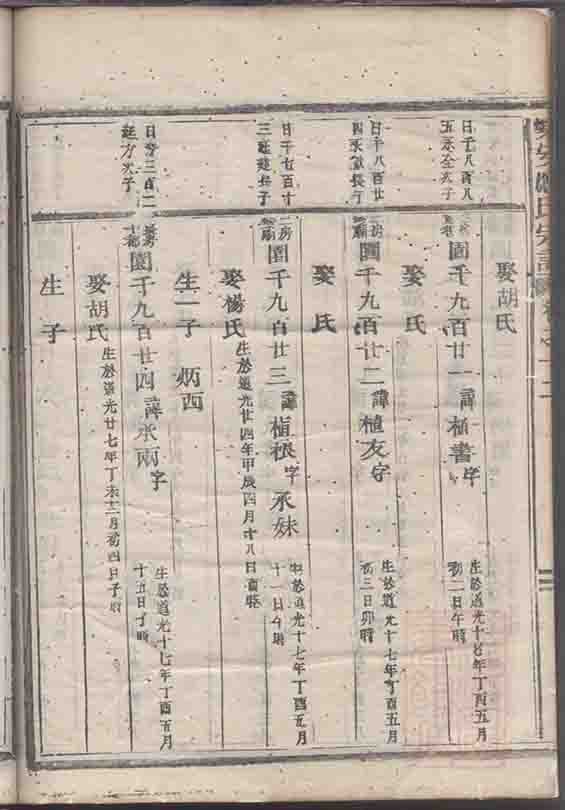 娶胡氏
日千八百八
五承全次子
圖千九百廿一諱植書字
生於道光十七年丁酉五月
初二日午時
娶 氏
日千八百廿
圖千九百廿二諱植友字
生於道光十七年丁酉五月
初三日卯時
娶 氏
日千七百十
二房
圖千九百廿三諱植根字承妹
生於道光十七年丁酉五月
十一日午時
娶楊氏生於道光廿四年甲辰四月十八日酉時
生一子 炳西
日 三百二
廷方次子
圖千九百廿四諱承兩字
生於道光十七年丁酉五月
十五日子時
娶胡氏生於道光廿七年丁未十二月初四日子時
生 子